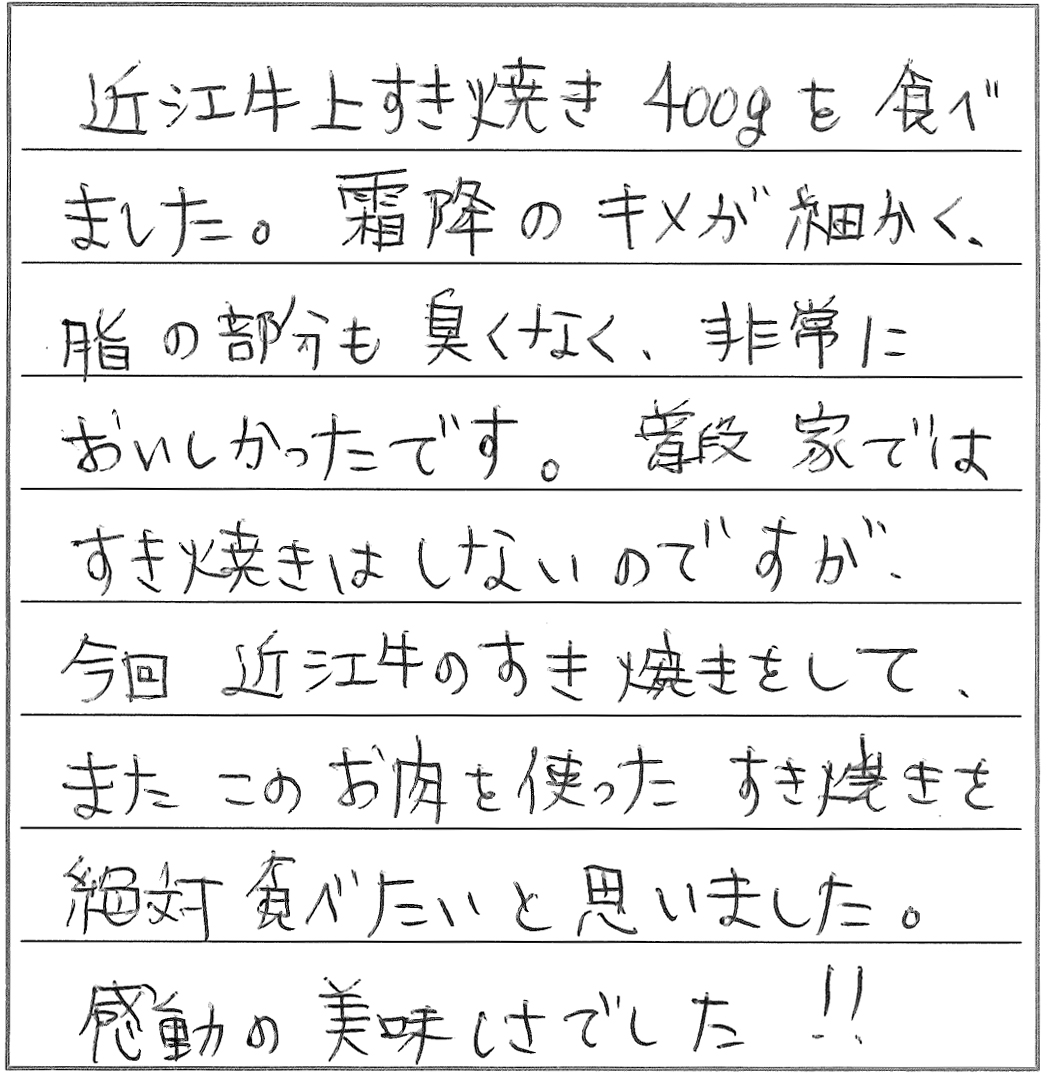 近江牛上すき焼き 400gを食べ
ました。霜降のキメが細かく、
脂の部分も臭くなく、非常に
おいしかったです。普段家では
すき焼きはしないのですが、
今回 近江牛のすき焼きをして、
また このお肉を使った すき焼きを
絶対食べたいと思いました。
感動の美味しさでした!!